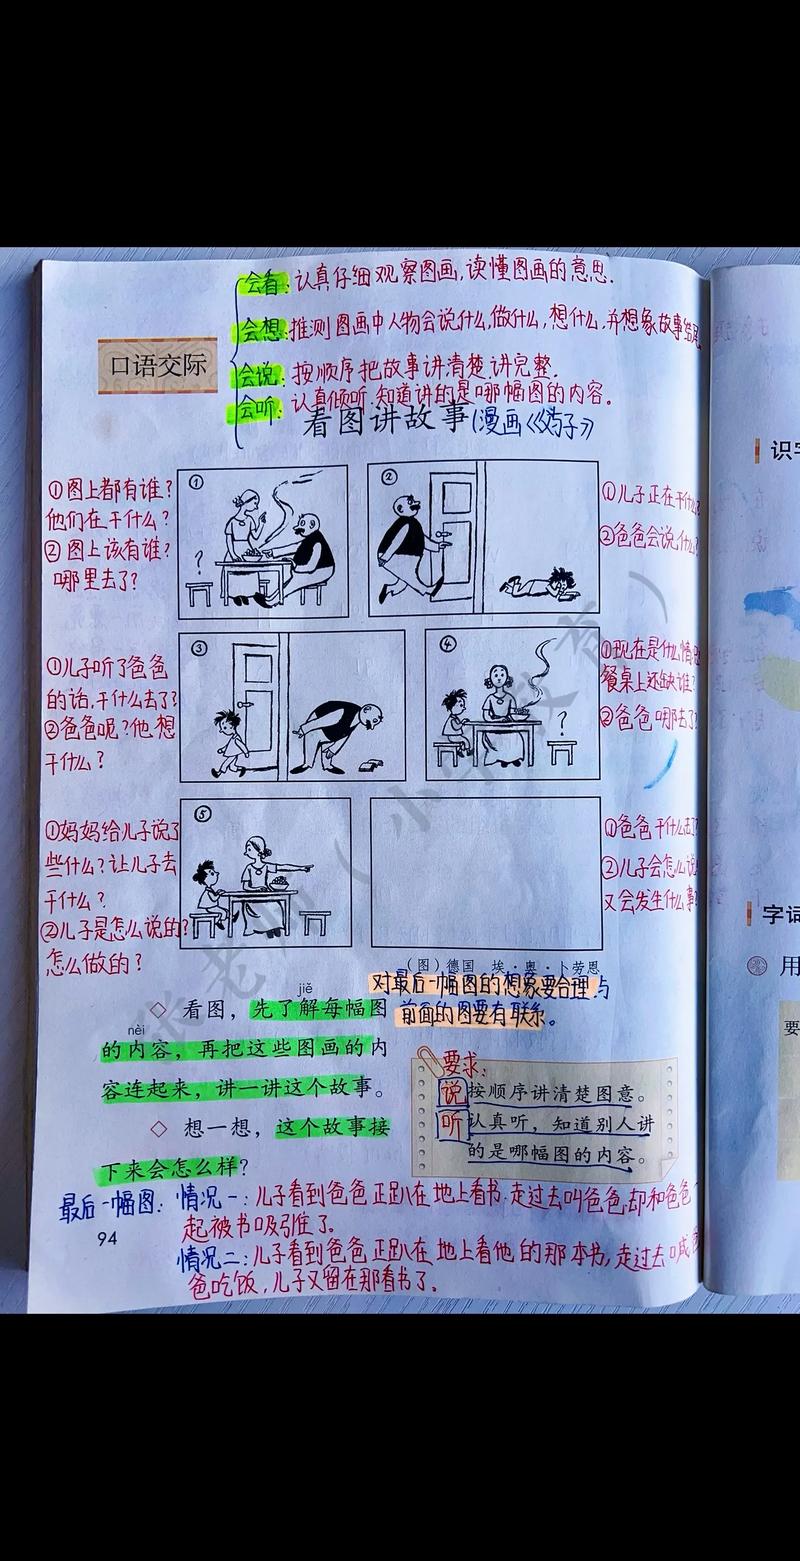 会看:认真仔细观察图画,读懂图画的意思.
会想:推测图画中人物会说什么,做什么,想什么,并想象故事结尾
口语交际
会说:按顺序把故事讲清楚讲完整.
会听:认真倾听.知道讲的是哪幅图的内容。
看图讲故事(漫画《父与子》)
①图上都有谁?
他们在干什么?
②图上该有谁?
哪里去了?
①
?
②
①儿子正在干什么
②爸爸会说什么?
①儿子听了爸爸
的话,干什么去了?
②爸爸呢?他想
干什么?
③
④
?
①现在是什么情况
餐桌上还缺谁?
②爸爸哪去了?
①妈妈给儿子说了
些什么?让儿子去
干什么?
②儿子是怎么说的?
怎么做的?
⑤
①爸爸干什么去了?
②儿子会怎么说
又会发生什么事
(图)德国 埃·奥·卜劳恩
对最后一幅图的想象要合理,与
前面的图要有联系。
jiě
◇ 看图,先了解每幅图
nèi
的内容,再把这些图画的内
容连起来,讲一讲这个故事。
◇ 想一想,这个故事接
下来会怎么样?
要求:
说 按顺序讲清楚图意。
听 认真听,知道别人讲
的是哪幅图的内容。
最后一幅图:情况一:儿子看到爸爸正趴在地上看书.走过去叫爸爸,却和爸爸一
起被书吸引住了。
情况二:儿子看到爸爸正趴在地上看他的那本书,走过去喊爸
爸吃饭,儿子又留在那看书了。
94
识字
字词
用
要
张老师(小学教育)